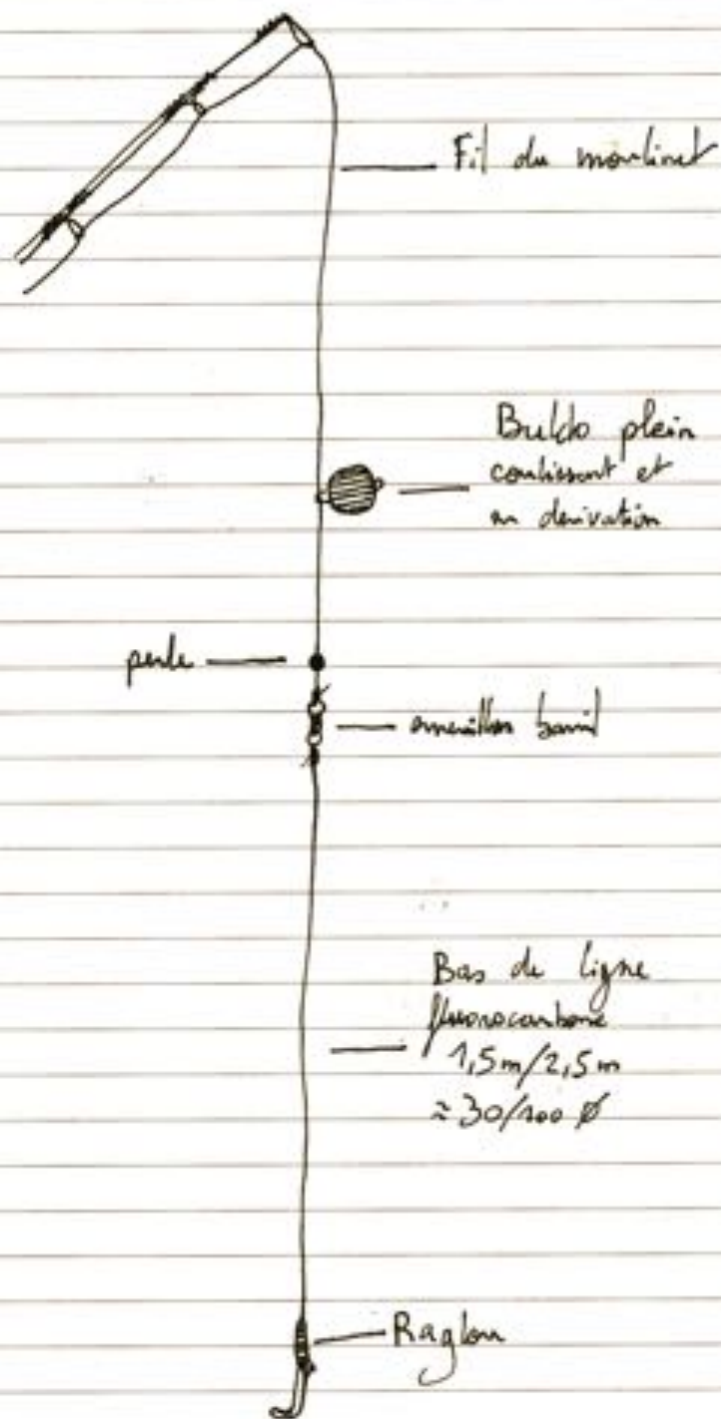 Fil du moulinet
Buldo plein
coulissant et
en derivation
perle
emerillon baril
Bas de ligne
fluorocarbone
1,5m/2,5m
≈30/100 Ø
Raglou